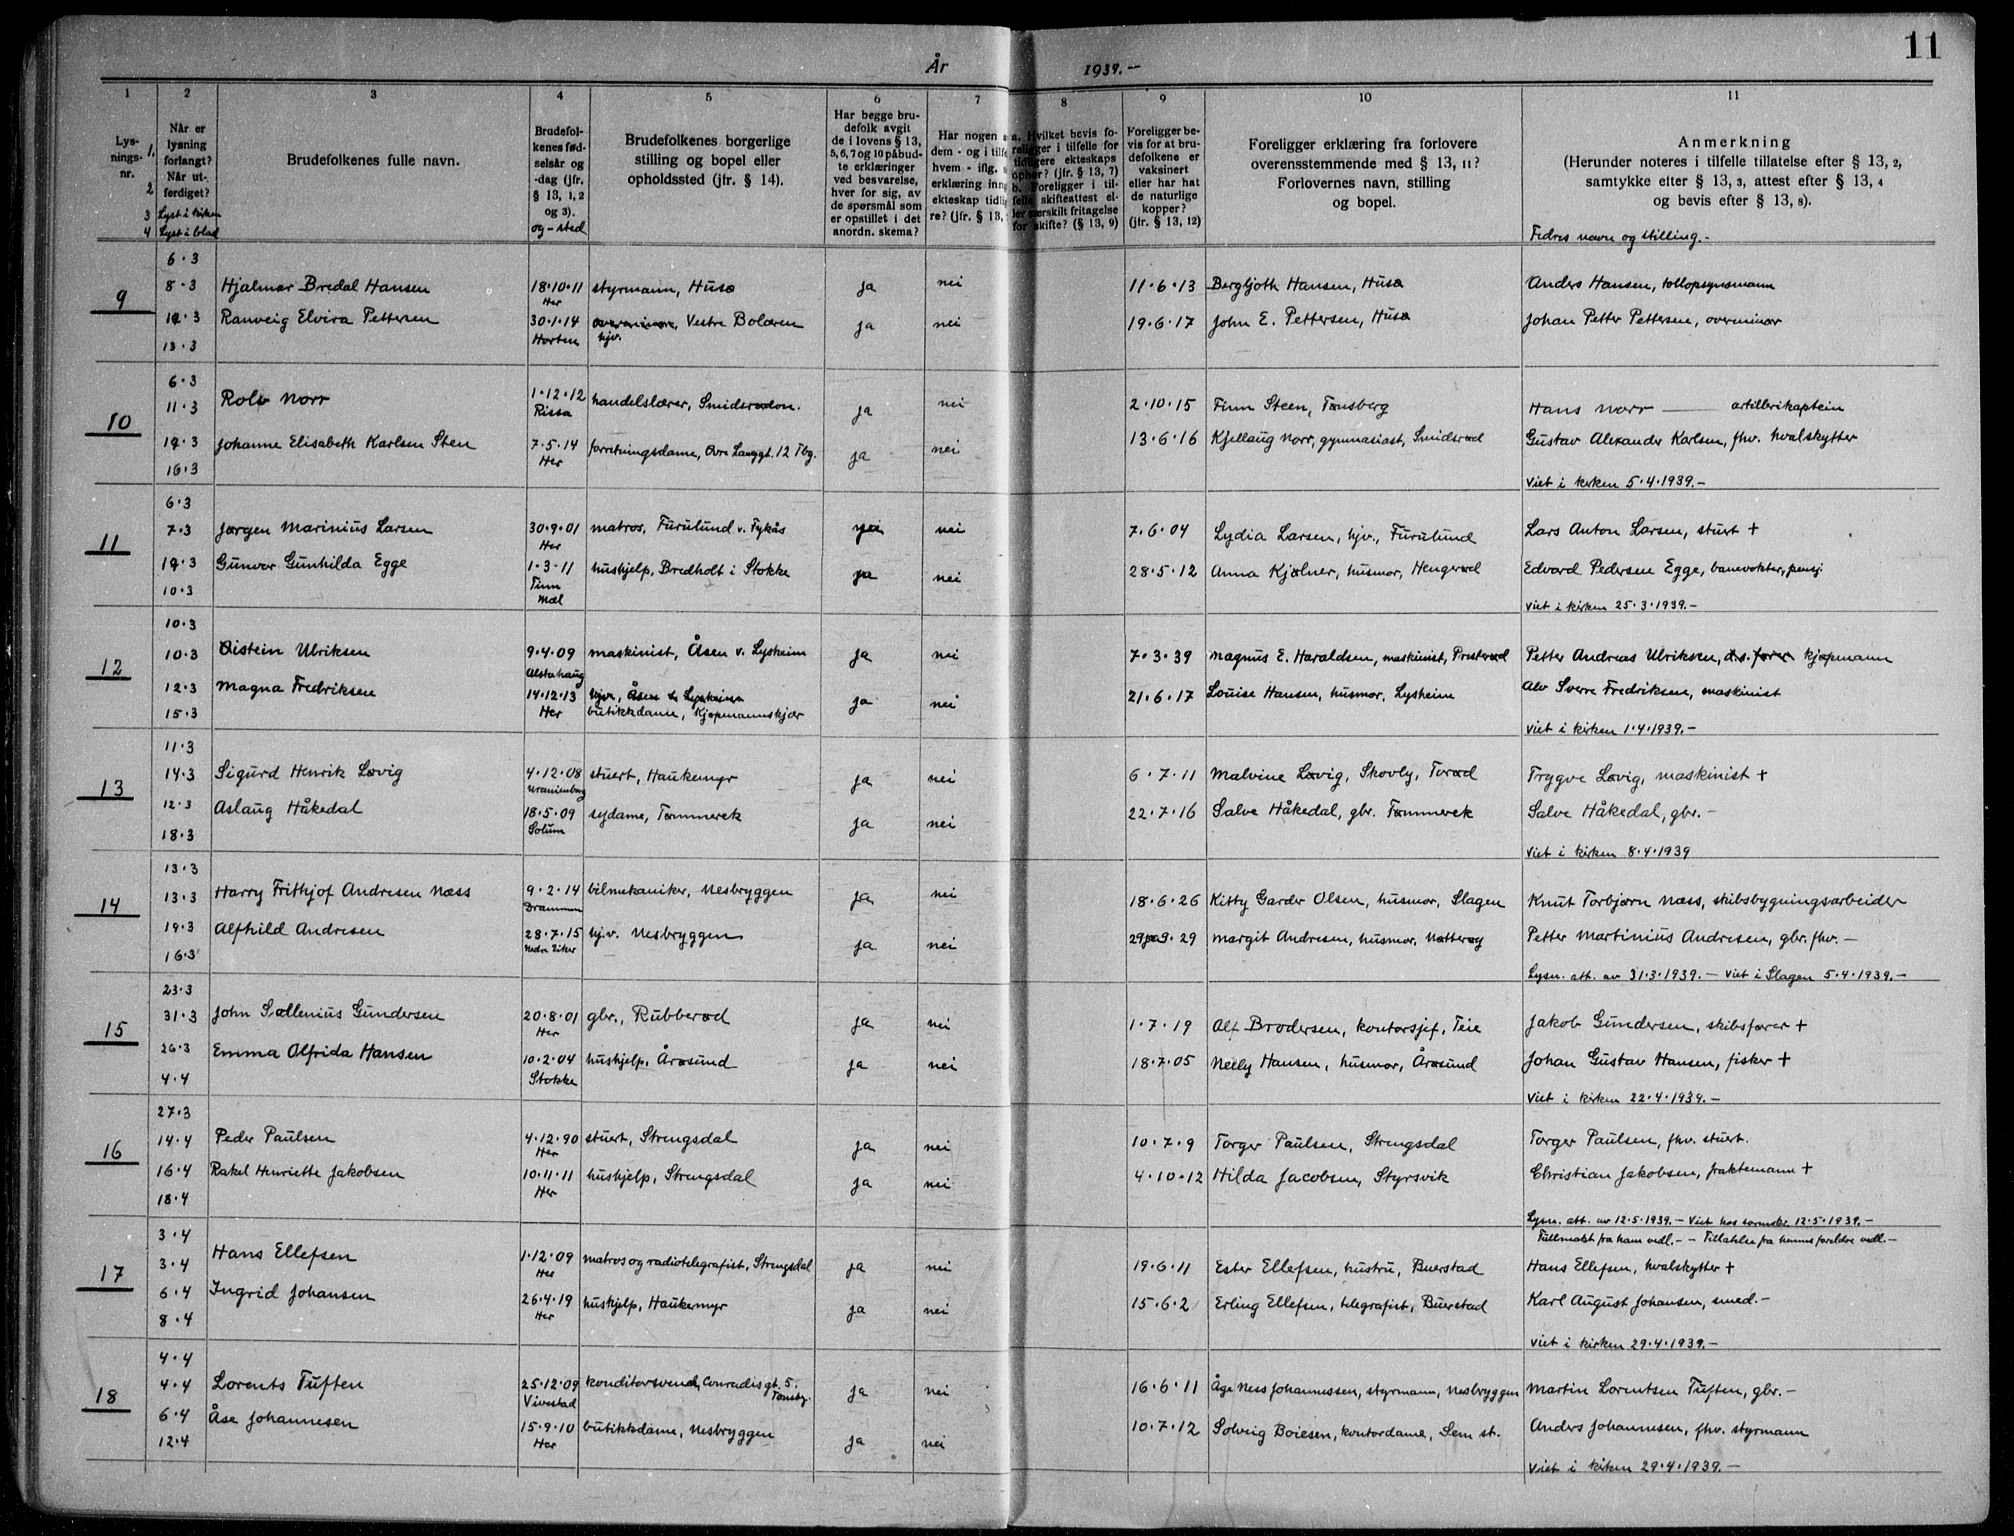 11
År 1939.-
1 2 3 4 5 6 7 8 9 10 11
Lys-
nings-
nr.
1.
2
3
4
Når er
lysning
forlangt?
Når ut-
ferdiget?
Lyst i kirken
Lyst i blad
Brudefolkenes fulle navn.
Brudefol-
kenes fød-
selsår og
-dag (jfr.
§ 13, 1, 2
og 3).
og-sted
Brudefolkenes borgerlige
stilling og bopel eller
opholdssted (jfr. § 14).
Har begge bru-
defolk avgit
de i lovens § 13,
5, 6, 7 og 10 påbud-
te erklæringer
ved besvarelse,
hver for sig, av
de spørsmål som
er opstillet i det
anordn. skema?
Har nogen a
dem - og i tilfe
hvem - iflg. s
erklæring inng
ekteskap tidlig
re? (jfr. § 13,
a. Hvilket bevis fo-
religger i tilfelle for
tidligere ekteskaps
ophør? (jfr. § 13, 7)
b. Foreligger i til-
felle skifteattest el-
ler særskilt fritagelse
for skifte? (§ 13, 9)
Foreligger be-
vis for at bru-
defolkene er
vaksinert
eller har hat
de naturlige
kopper?
(jfr. § 13, 12)
Foreligger erklæring fra forlovere
overensstemmende med § 13, 11?
Forlovernes navn, stilling
og bopel.
Anmerkning
(Herunder noteres i tilfelle tillatelse efter § 13, 2,
samtykke efter § 13, 3, attest efter § 13, 4
og bevis efter § 13, 8).
Fedres navn og stilling.-
6.3
9 8.3 Hjalmar Bredal Hansen 18.10.11 styrmann, Husø ja nei 11.6.13 Bergljoth Hansen, Husø Anders Hansen, tollopsynsmann
Her
12.3 Ranveig Elvira Pettersen 30.1.14 Vestre Bolæren ja nei 19.6.17 John E. Pettersen, Husø Johan Petter Pettersen, overminør
Horten hjv.
13.3
6.3
10 11.3 Rolv Norr 1.12.12 handelslærer, Smidsrødvn. ja nei 2.10.15 Finn Steen, Tønsberg Hans Norr artillerikaptein
Rissa
12.3 Johanne Elisabeth Karlsen Sten 7.5.14 forretningsdame, Øvre Langgt. 12 Tbg. ja nei 13.6.16 Kjellaug Norr, gymnasiast, Smidsrød Gustav Alexander Karlsen, fhv. hvalskytter
Her
16.3 Viet i kirken 5.4.1939.-
6.3
11 7.3 Jørgen Marinius Larsen 30.9.01 matros, Furulund v. Tykås ja nei 7.6.04 Lydia Larsen, hjv., Furulund Lars Anton Larsen, stuert +
Her
12.3 Gunvor Gunhilda Egge 1.3.11 hushjelp, Bredholt i Stokke ja nei 28.5.12 Anna Kjølner, husmor, Hengerød Edvard Pedersen Egge, banevokter, pensj.
Tinn
Mæl
10.3 Viet i kirken 25.3.1939.-
10.3
12 10.3 Øistein Ulriksen 9.4.09 maskinist, Åsen v. Lysheim ja nei 7.3.39 Magnus E. Haraldsen, maskinist, Presterød Petter Andreas Ulriksen, kjøpmann
Alstahaug
12.3 Magna Fredriksen 14.12.13 hjv., Åsen v. Lysheim ja nei 21.6.17 Louise Hansen, husmor, Lysheim Alv Sverre Fredriksen, maskinist
15.3 Her butikkdame, Kjøpmannskjær
Viet i kirken 1.4.1939.-
11.3
13 14.3 Sigurd Henrik Løvig 4.12.08 stuert, Haukemyr ja nei 6.7.11 Malvine Løvig, Skovly, Torød Trygve Løvig, maskinist +
Uranienborg
12.3 Aslaug Håkedal 18.5.09 sydame, Tømmerek ja nei 22.7.16 Salve Håkedal, gbr. Tømmerek Salve Håkedal, gbr.-
Solum
18.3 Viet i kirken 8.4.1939
13.3
14 13.3 Harry Frithjof Andresen Næss 9.2.14 bilmekaniker, Nesbryggen ja nei 18.6.26 Kitty Garder Olsen, husmor, Slagen Knut Torbjørn Næss, skibsbygningsarbeider
Drammen
19.3 Alfhild Andresen 28.7.15 hj.v. Nesbryggen ja nei 29.9.29 Margit Andresen, husmor, Nøtterøy Petter Martinius Andresen, gbr. fhv.-
Nedre Eiker
16.3 Lysn. att. av 31.3.1939.- Viet i Slagen 5.4.1939.-
23.3
15 31.3 John Sællenius Gundersen 20.8.01 gbr., Rubberød ja nei 1.7.19 Alf Brodersen, kontorsjef, Teie Jakob Gundersen, skibsfører +
Her
26.3 Emma Alfrida Hansen 10.2.04 hushjelp, Årøsund ja nei 18.7.05 Nelly Hansen, husmor, Årøsund Johan Gustav Hansen, fisker +
Stokke
4.4 Viet i kirken 22.4.1939.-
27.3
16 14.4 Peder Paulsen 4.12.90 stuert, Strengsdal ja nei 10.7.9 Torger Paulsen, Strengsdal Torger Paulsen, fhv. stuert.
Her
16.4 Rakel Henriette Jakobsen 10.11.11 hushjelp, Strengsdal ja nei 4.10.12 Hilda Jacobsen, Styrsvik Christian Jakobsen, fraktemann +
Her
18.4 Lysn. att. av 12.5.1939.- Viet hos sorenskr. 12.5.1939.-
3.4 Fullmakt fra ham vedl.- - Tillatelse fra hennes foreldre vedl.-
17 3.4 Hans Ellefsen 1.12.09 matros og radiotelegrafist, Strengsdal ja nei 19.6.11 Ester Ellefsen, hustru, Buerstad Hans Ellefsen, hvalskytter +
Her
6.4 Ingrid Johansen 26.4.19 hushjelp, Haukemyr ja nei 15.6.2 Erling Ellefsen, telegrafist, Buerstad Karl August Johansen, smed.-
Her
8.4 Viet i kirken 29.4.1939.-
4.4
18 4.4 Lorents Tuften 25.12.09 konditorsvend, Conradisgt. 5. Tønsbg. ja nei 16.6.11 Åge Ness Johannessen, styrmann, Nesbryggen Martin Lorentsen Tuften, gbr.-
Vivestad
6.4 Åse Johannesen 15.9.10 butikkdame, Nesbryggen ja nei 10.7.12 Solveig Boiesen, kontordame, Sem st. Anders Johannesen, fhv. styrmann
Her
12.4 Viet i kirken 29.4.1939.-